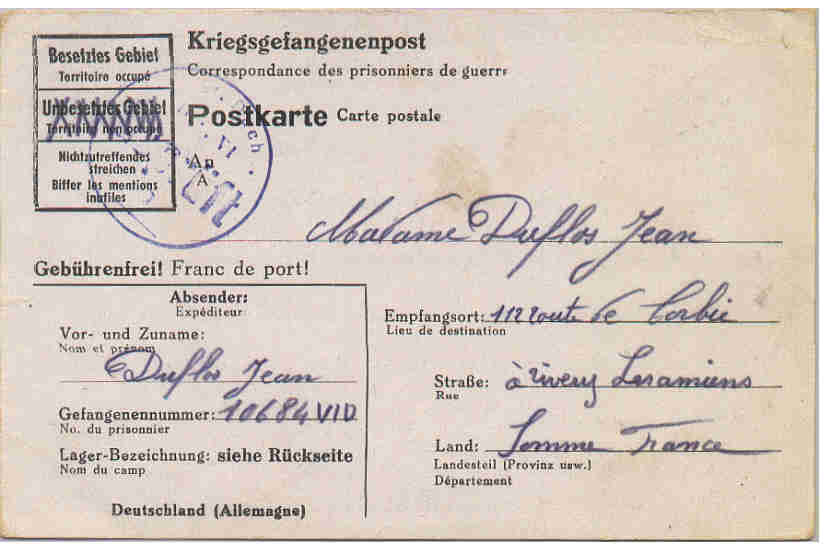 Besetztes Gebiet
Territoire occupé
Unbesetztes Gebiet
Territoire non occupé
Nichtzutreffendes
streichen
Biffer les mentions
inutiles
Kriegsgefangenenpost
Correspondance des prisonniers de guerre
Postkarte Carte postale
An
A
Madame Duflos Jean
Gebührenfrei! Franc de port!
Absender:
Expéditeur
Vor- und Zuname:
Nom et prénom
Duflos Jean
Gefangenennummer: 10684 VI D
No. du prisonnier
Lager-Bezeichnung: siehe Rückseite
Nom du camp
Deutschland (Allemagne)
Empfangsort: 112 route de Corbie
Lieu de destination
Straße: à rivery Les amiens
Rue
Land: Somme France
Landesteil (Provinz usw.)
Département